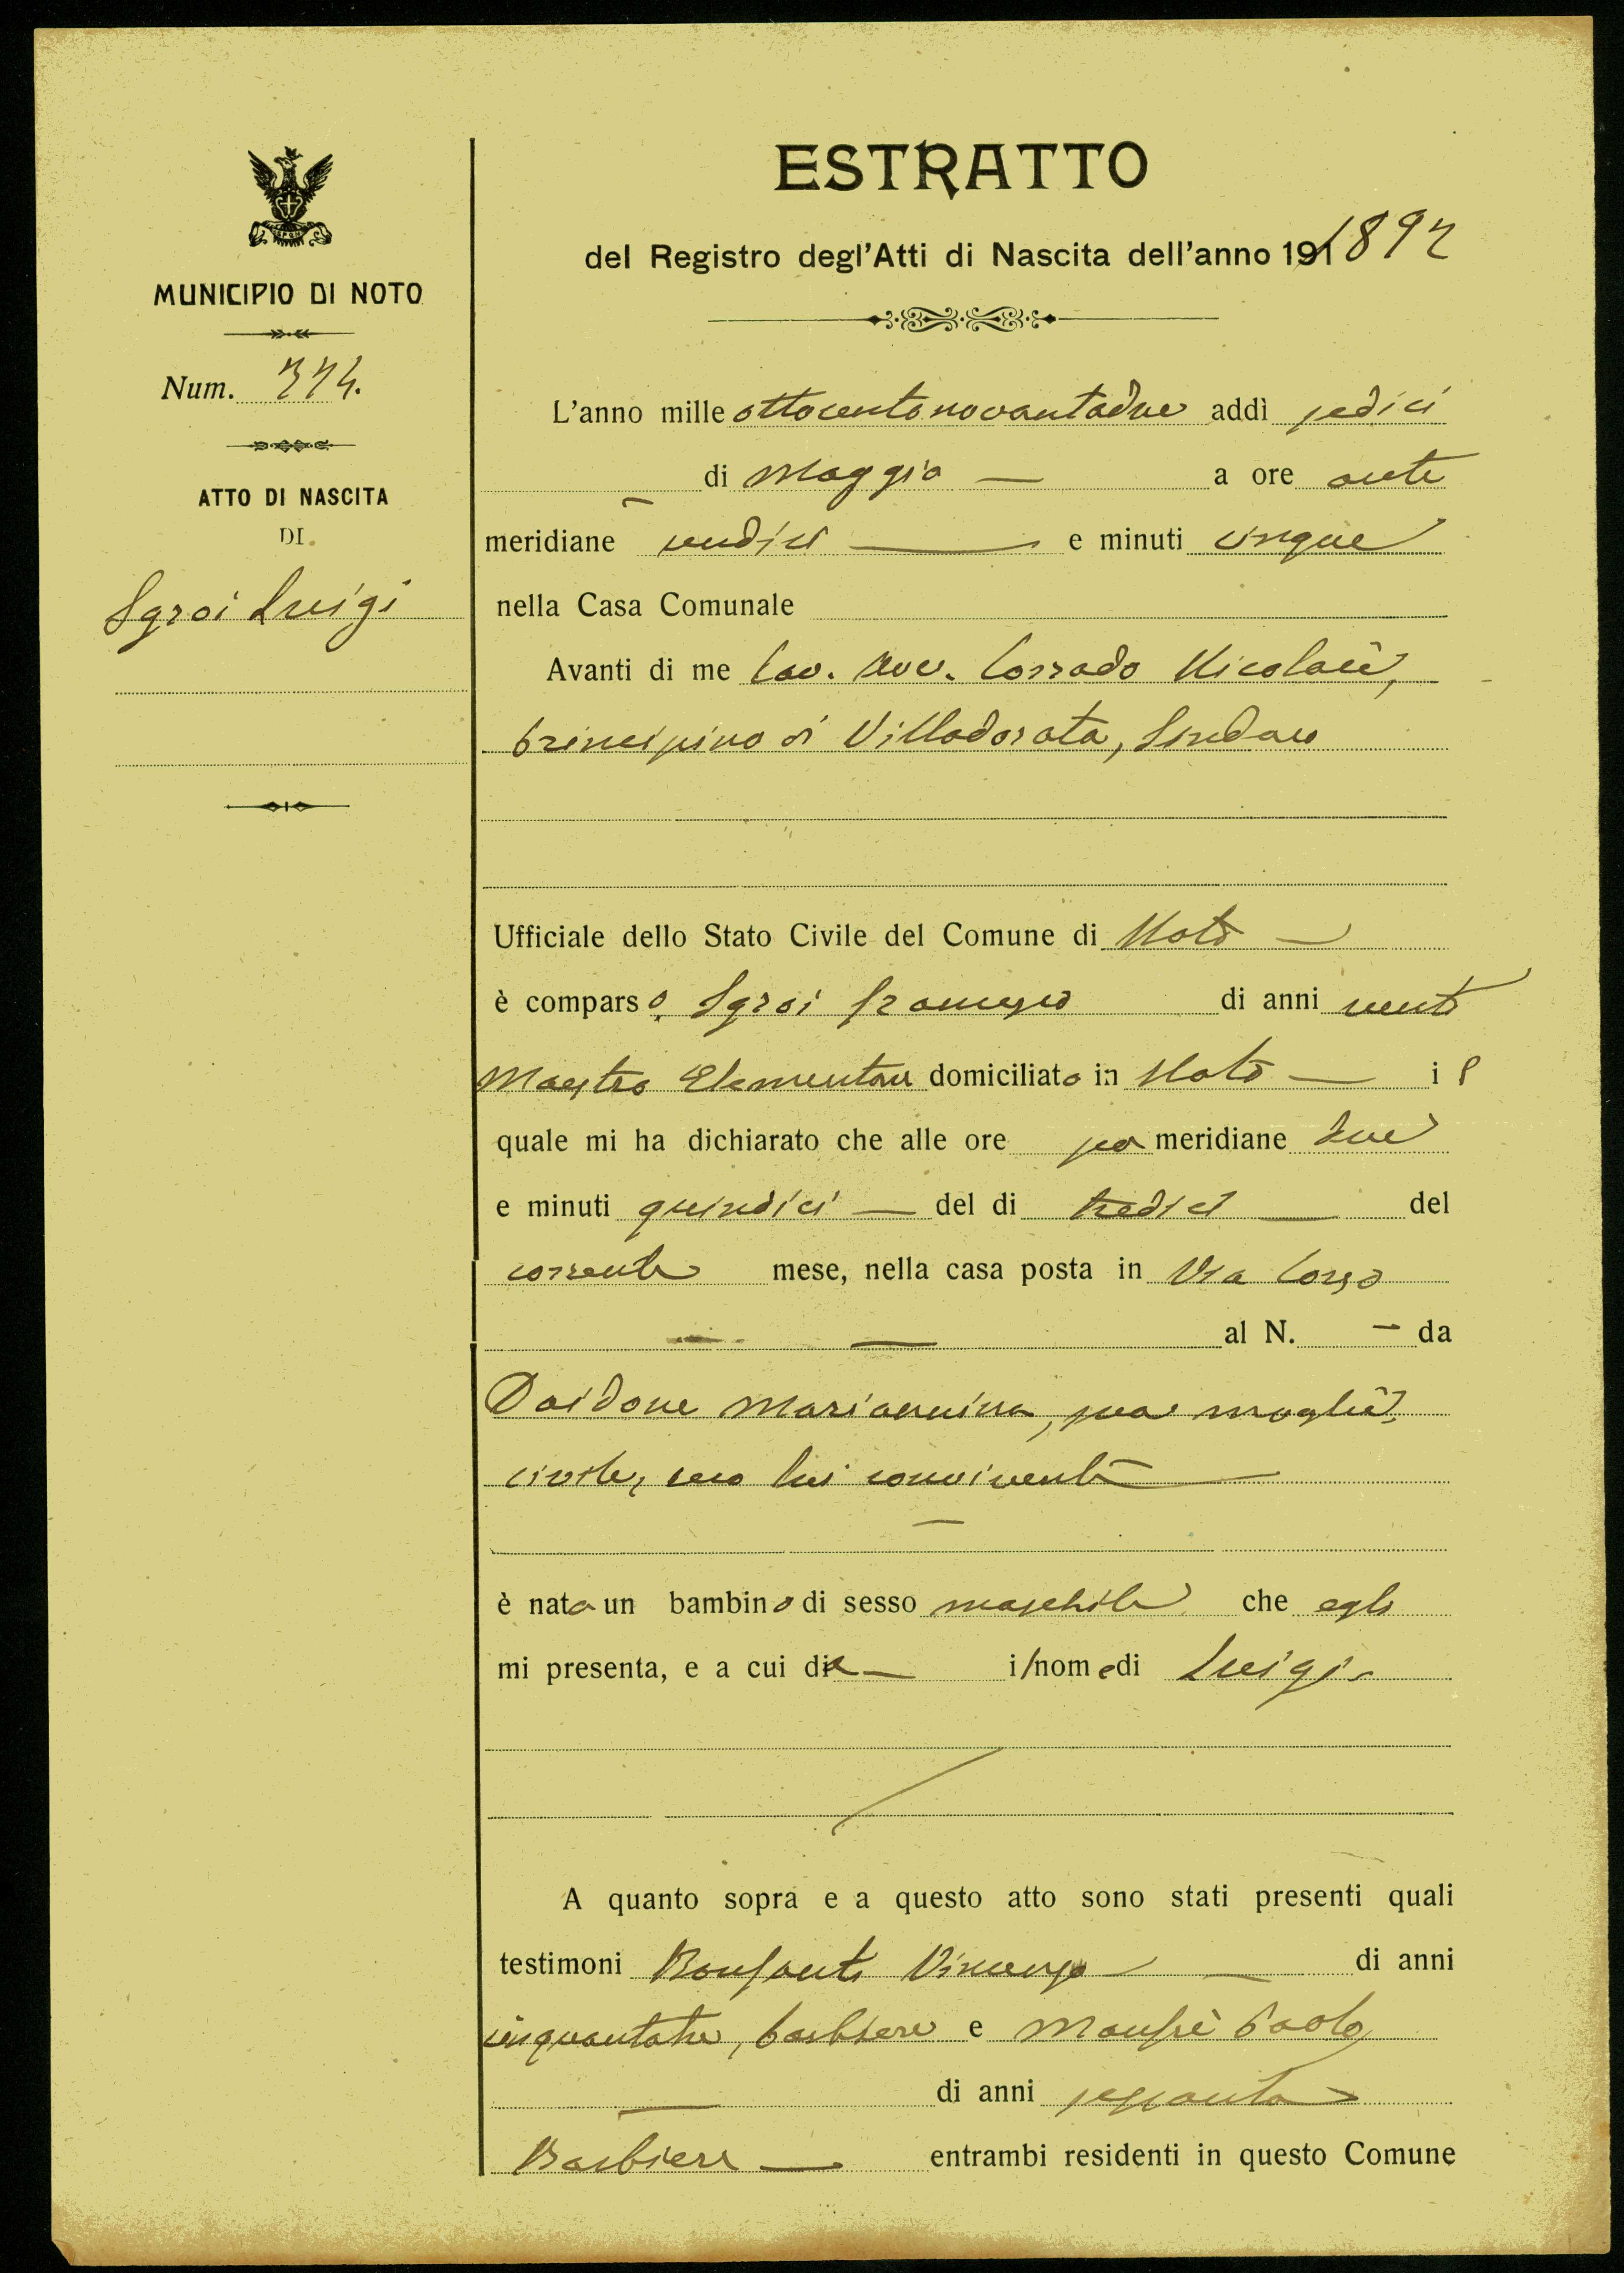 ESTRATTO
del Registro degl'Atti di Nascita dell'anno 191 1892
MUNICIPIO DI NOTO
Num. 374.
ATTO DI NASCITA
DI
Sgroi Luigi
L'anno mille ottocentonovantadue addì sedici
di Maggio — a ore ante
meridiane undici — e minuti cinque
nella Casa Comunale
Avanti di me Cav. Avv. Corrado Nicolaci,
Principino di Villadorata, Sindaco
Ufficiale dello Stato Civile del Comune di Noto —
è comparso Sgroi Francesco di anni venti
Maestro Elementare domiciliato in Noto — il
quale mi ha dichiarato che alle ore po meridiane due
e minuti quindici — del di tredici — del
corrente mese, nella casa posta in Via Corso
— al N. — da
Daidone Mariannina, sua moglie,
civile, seco lui convivente —
è nato un bambino di sesso maschile che egli
mi presenta, e a cui dà — il nome di Luigi
A quanto sopra e a questo atto sono stati presenti quali
testimoni Bonfanti Vincenzo — di anni
cinquantatre, barbiere e Manfrè Paolo
— di anni sessanta
Barbiere — entrambi residenti in questo Comune